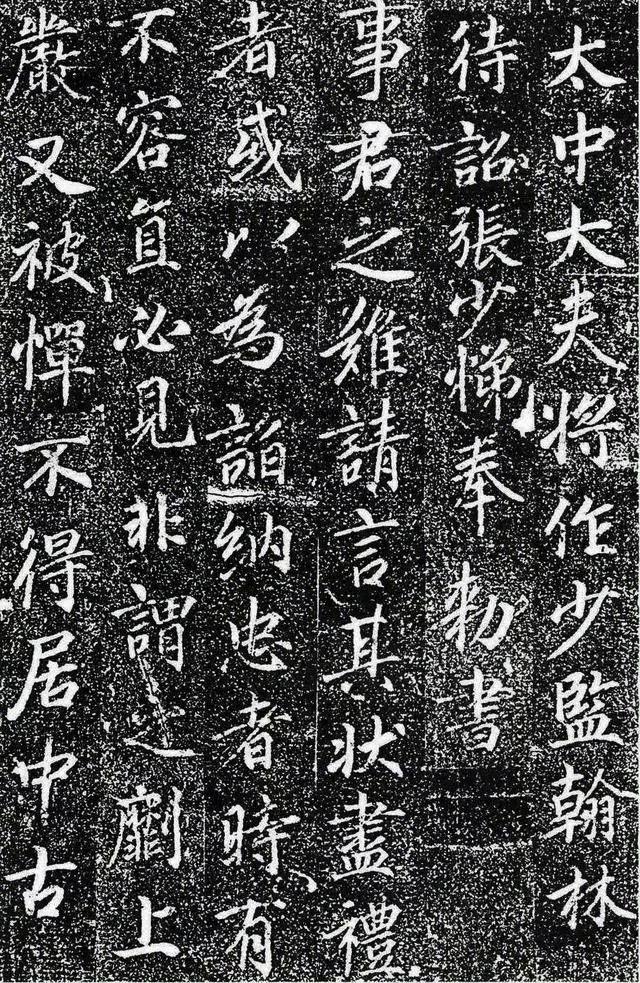 太中大夫将作少監翰林
待詔張少悌奉勅書
事君之難請言其状盡禮
者或以為諂納忠者時有
不容直必見非謂之劘上
嚴又被憚不得居中古